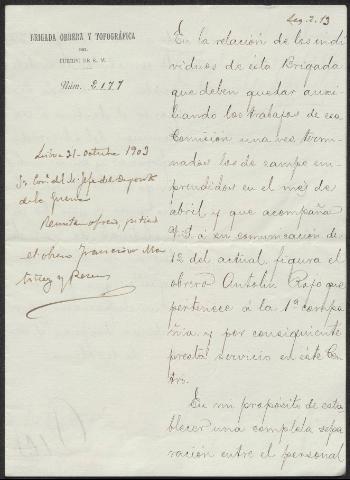 Leg. 2.13
BRIGADA OBRERA Y TOPOGRÁFICA
DEL
CUERPO DE E. M.
Núm. 2.177
21 - Octubre 1903
de la Guerra
el obrero Francisco
y
En la relación de los indi
viduos de esta Brigada
que deben quedar auxi
liando los trabajos de esa
Comisión una vez termi
nados los de campo em
prendidos en el mes de
abril y que acompaña
V.S. á su comunicación de
12 del actual, figura el
obrero Antolín Rojo que
pertenece á la 1ª compa
ñia y por consiguiente
presta servicio en este Cen
tro.
En mi propósito de esta
blecer una completa sepa
ración entre el personal